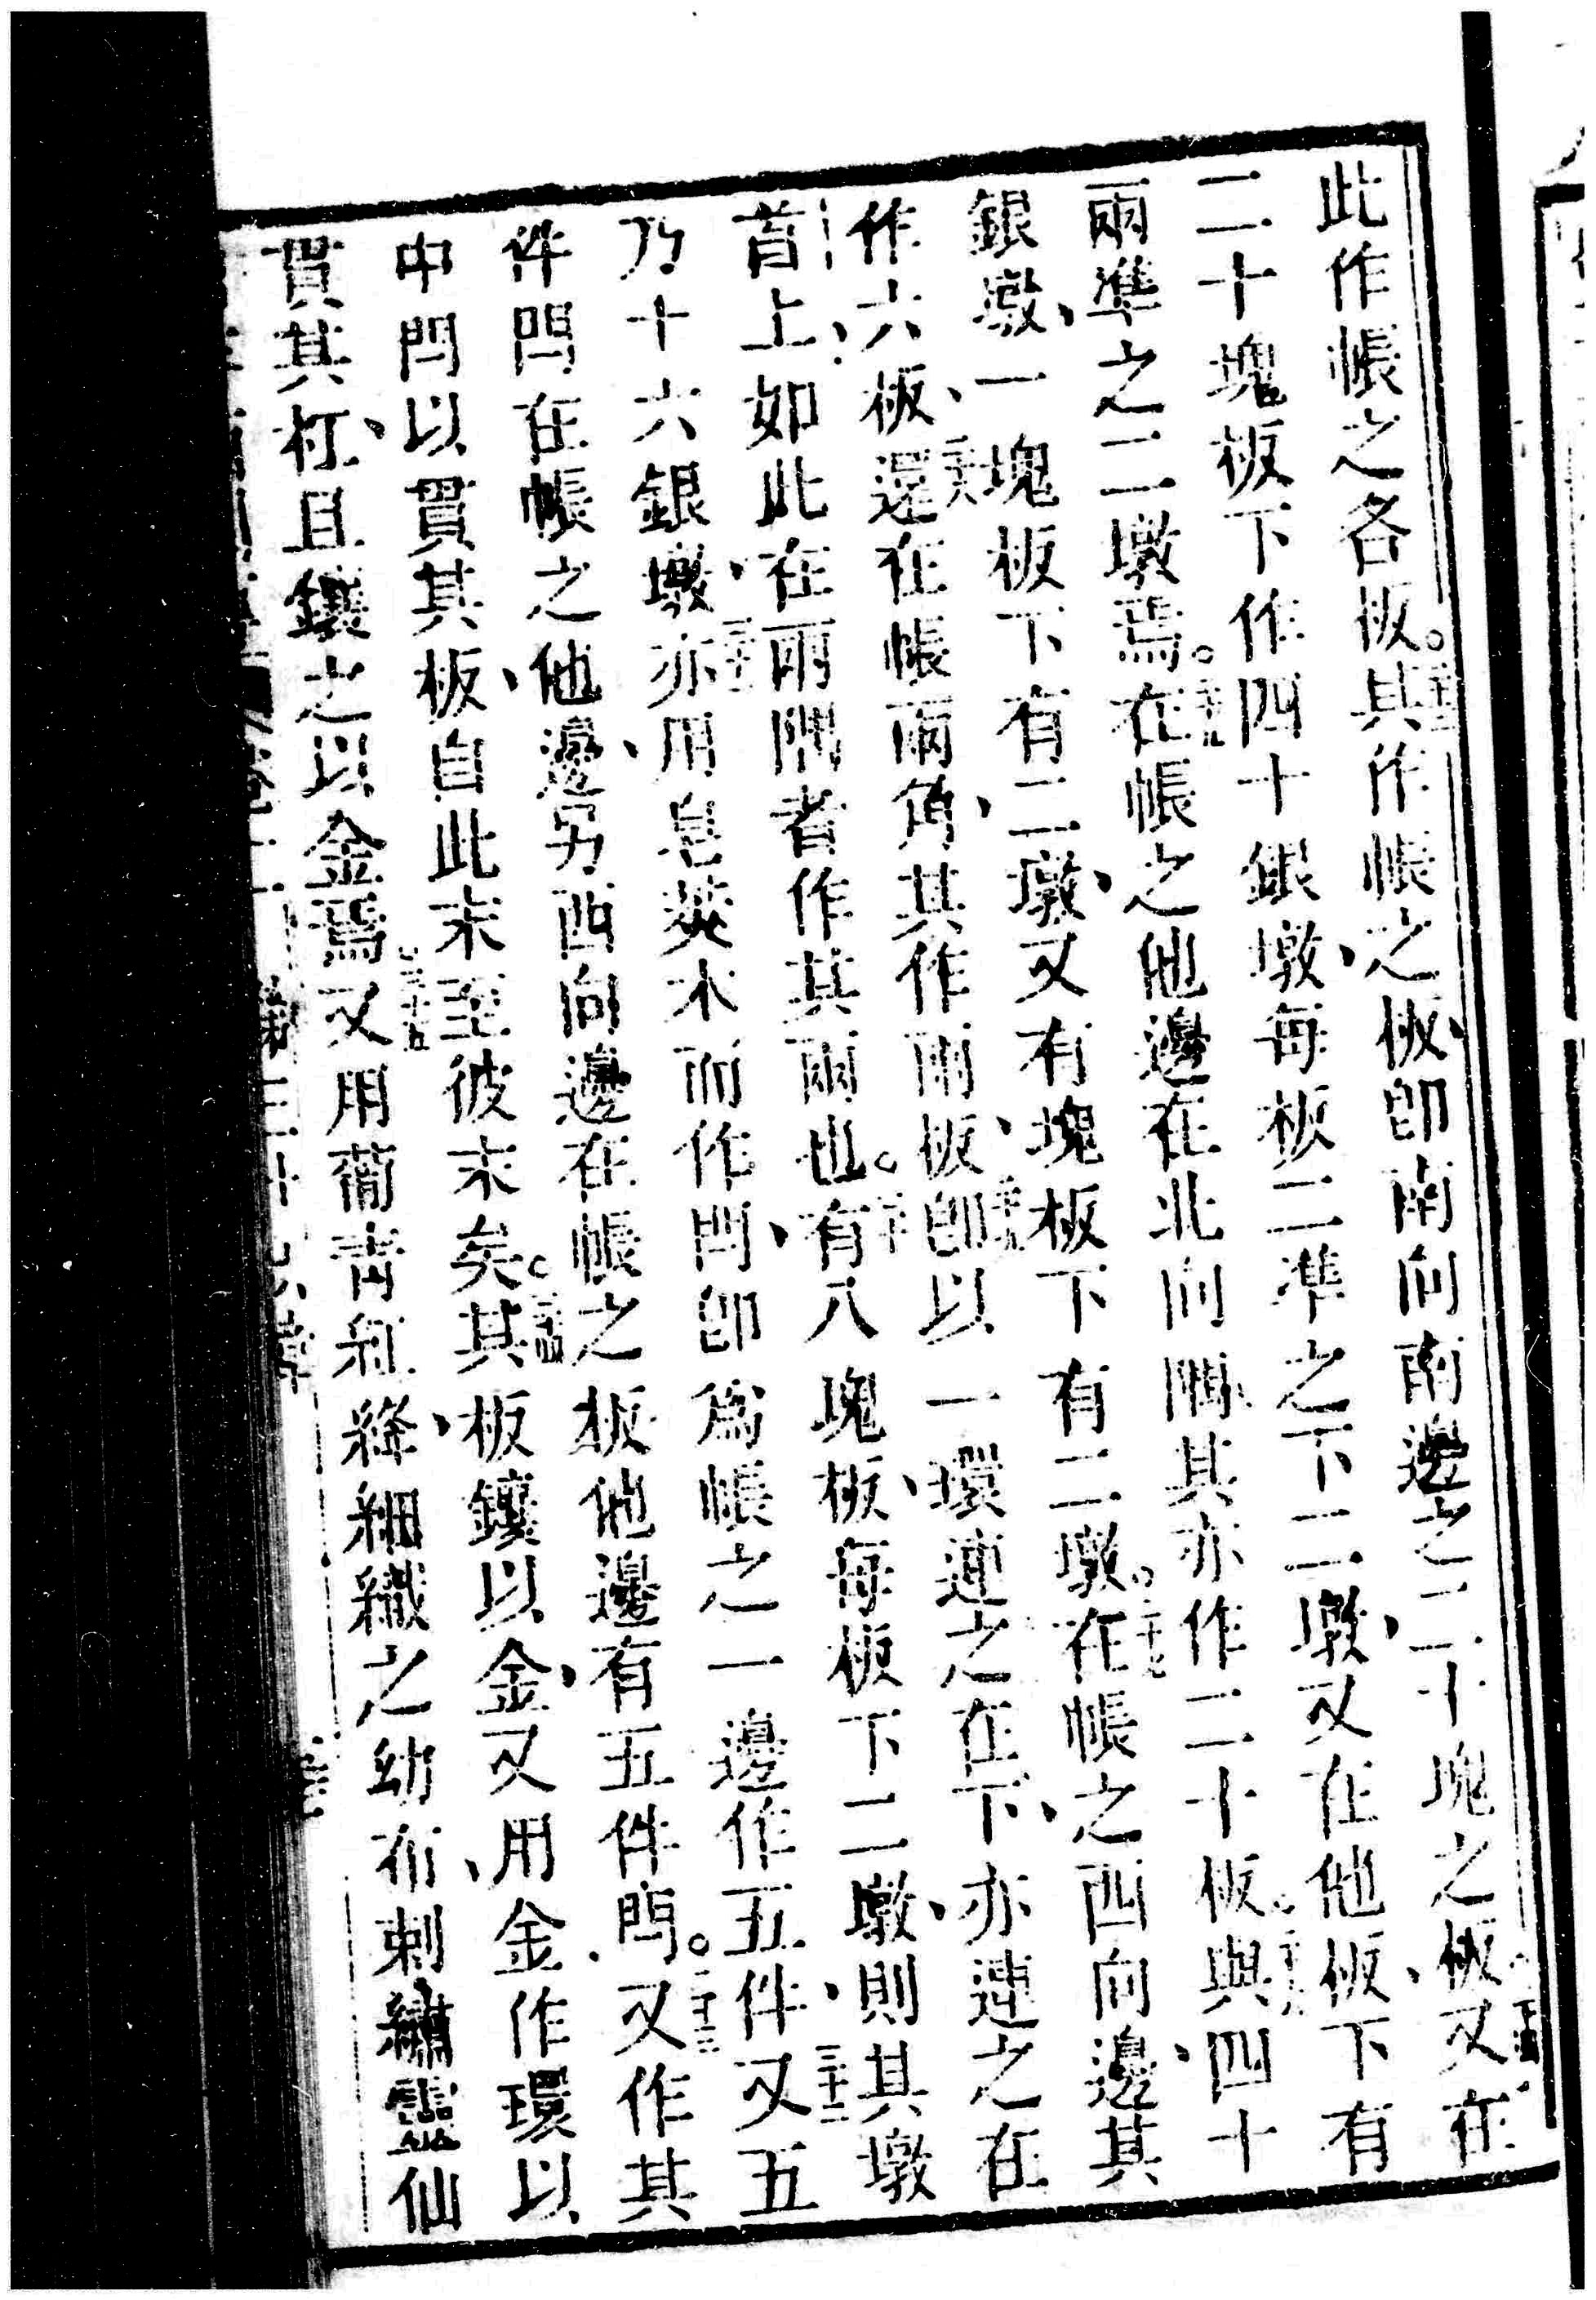 此作帳之各板。二十三其作帳之板、即南向南邊之二十塊之板。二十四又在
二十塊板下作四十銀墩、每板二準之下二墩、又在他板、下有
兩準之二墩焉。二十五在帳之他邊在北向隅、其亦作二十板。二十六與四十
銀墩、一塊板下有二墩、又有塊板下有二墩。二十七在帳之西向邊、其
作六板、二十八還在帳兩角、其作兩板、二十九即以一環連之在下、亦連之在
首上、如此在兩隅者作其兩也。三十有八塊板、每板下二墩、則其墩
乃十六銀墩、三十一亦用皂莢木而作閂、即為帳之一邊作五件、三十二又五
件閂在帳之他邊、另西向邊在帳之板他邊有五件閂。三十三又作其
中閂以貫其板、自此末至彼末矣。三十四其板鑲以金、又用金作環以
貫其杠、且鑲之以金焉。三十五又用葡青紅絳、細織之幼布、刺繡靈仙